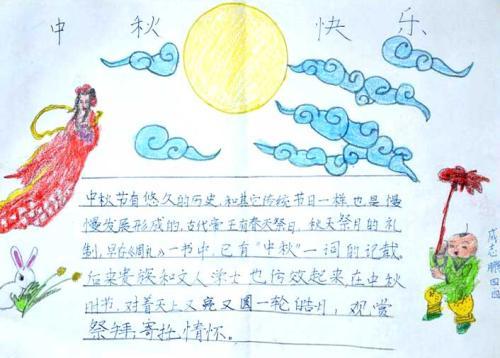 中秋快乐
中秋节有悠久的历史,和其它传统节日一样也是慢
慢发展形成的,古代帝王有春天祭日,秋天祭月的礼
制,早在《周礼》一书中,已有“中秋”一词的记载。
后来贵族和文人学士也仿效起来,在中秋
时节,对着天上又亮又圆一轮皓月,观赏
祭拜,寄托情怀。